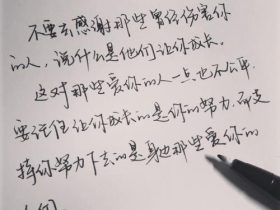 不要去感谢那些曾经伤害你
的人，说什么是他们让你成长。
这对那些爱你的人一点也不公平
要记住让你成长的是你的努力，而支
撑你努力下去的是身边那些爱你的